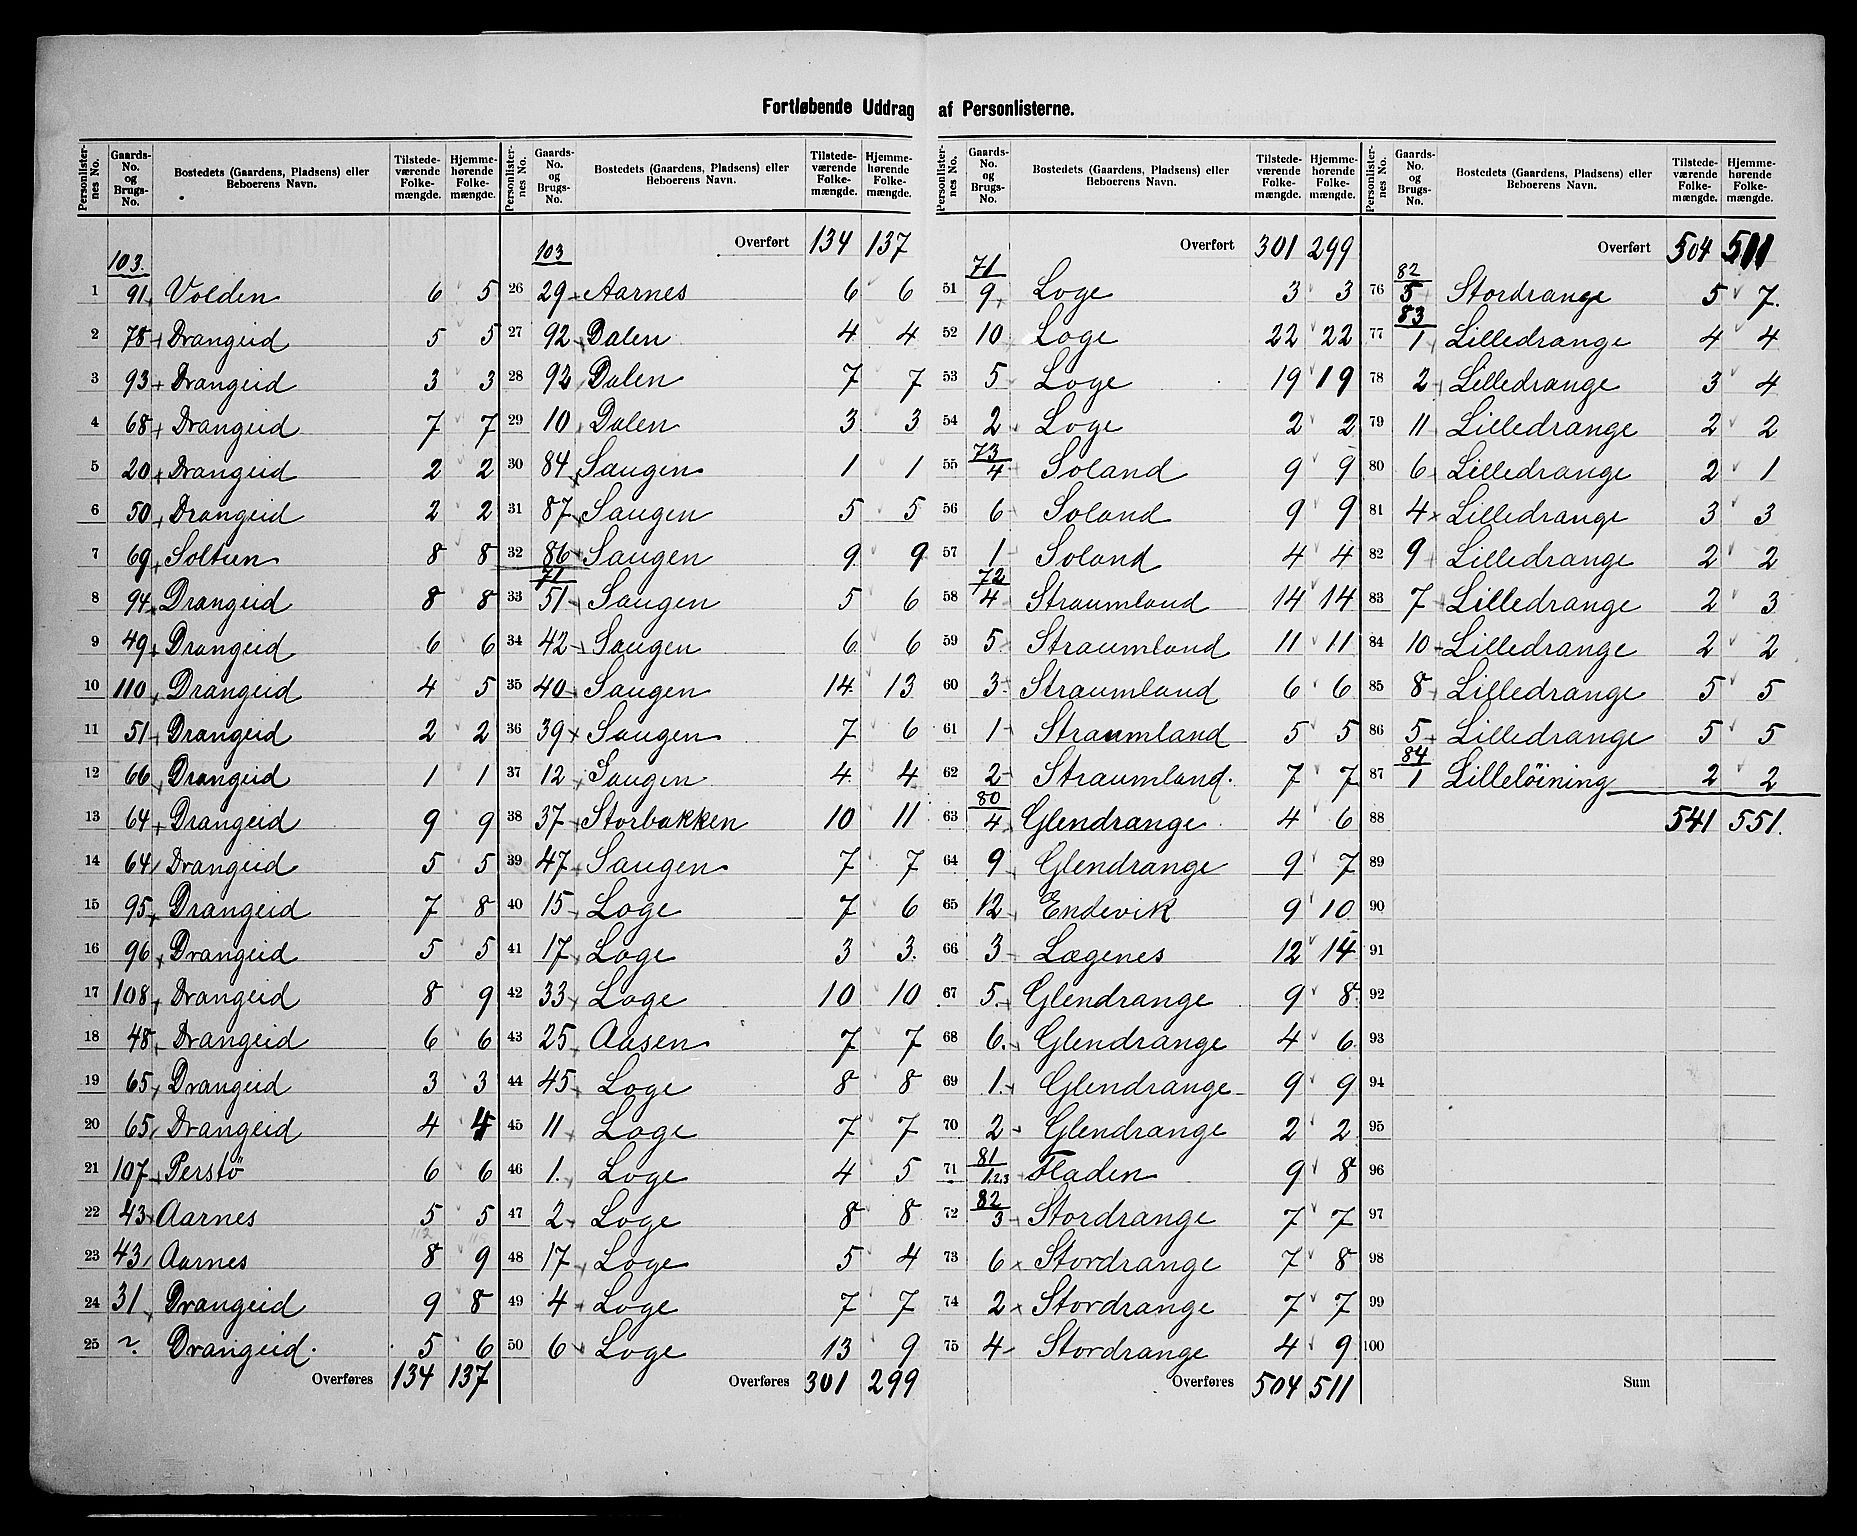 Fortløbende Uddrag af Personlisterne.
Personlister-nes No. | Gaards-No. og Brugs-No. | Bostedets (Gaardens, Pladsens) eller Beboerens Navn. | Tilstede-værende Folke-mængde. | Hjemme-hørende Folke-mængde.
103.
1 91 Volden 6 5
2 78 Drangeid 5 5
3 93 Drangeid 3 3
4 68 Drangeid 7 7
5 20 Drangeid 2 2
6 50 Drangeid 2 2
7 69 Soltun 8 8
8 94 Drangeid 8 8
9 49 Drangeid 6 6
10 110 Drangeid 4 5
11 51 Drangeid 2 2
12 66 Drangeid 1 1
13 64 Drangeid 9 9
14 64 Drangeid 5 5
15 95 Drangeid 7 8
16 96 Drangeid 5 5
17 108 Drangeid 8 9
18 48 Drangeid 6 6
19 65 Drangeid 3 3
20 65 Drangeid 4 4
21 107 Perstö 6 6
22 43 Aarnes 5 5
23 43 Aarnes 8 9
24 31 Drangeid 9 8
25 ? Drangeid. 5 6
Overføres 134 137
Personlister-nes No. | Gaards-No. og Brugs-No. | Bostedets (Gaardens, Pladsens) eller Beboerens Navn. | Tilstede-værende Folke-mængde. | Hjemme-hørende Folke-mængde.
Overført 134 137
103
26 29 Aarnes 6 6
27 92 Dalen 4 4
28 92 Dalen 7 7
29 10 Dalen 3 3
30 84 Saugen 1 1
31 87 Saugen 5 5
32 86 Saugen 9 9
71
33 51 Saugen 5 6
34 42 Saugen 6 6
35 40 Saugen 14 13
36 39 Saugen 7 6
37 12 Saugen 4 4
38 37 Storbakken 10 11
39 47 Saugen 7 7
40 15 Loge 7 6
41 17 Loge 3 3.
42 33 Loge 10 10
43 25 Aasen 7 7
44 45 Loge 8 8
45 11 Loge 7 7
46 1. Loge 4 5
47 2 Loge 8 8
48 17 Loge 5 4
49 4 Loge 7 7
50 6 Loge 13 9
Overføres 301 299
Personlister-nes No. | Gaards-No. og Brugs-No. | Bostedets (Gaardens, Pladsens) eller Beboerens Navn. | Tilstede-værende Folke-mængde. | Hjemme-hørende Folke-mængde.
Overført 301 299
71
51 9 Loge 3 3
52 10 Loge 22 22
53 5 Loge 19 19
54 2 Loge 2 2
73
55 4 Soland 9 9
56 6 Soland 9 9
57 1 Soland 4 4
72
58 4 Straumland 14 14
59 5 Straumland 11 11
60 3 Straumland 6 6
61 1 Straumland 5 5
62 2 Straumland. 7 7
80
63 4 Glendrange 4 6
64 9 Glendrange 9 7
65 12 Endevik 9 10
66 3 Lægenes 12 14
67 5. Glendrange 9 8
68 6. Glendrange 4 6
69 1. Glendrange 9 9
70 2 Glendrange 2 2
81
71 1.2.3 Fladen 9 8
82
72 3 Stordrange 7 7
73 6 Stordrange 7 8
74 2 Stordrange 7 7
75 4 Stordrange 4 9
Overføres 504 511
Personlister-nes No. | Gaards-No. og Brugs-No. | Bostedets (Gaardens, Pladsens) eller Beboerens Navn. | Tilstede-værende Folke-mængde. | Hjemme-hørende Folke-mængde.
Overført 504 511
82
76 5 Stordrange 5 7.
83
77 1 Lilledrange 4 4
78 2 Lilledrange 3 4
79 11 Lilledrange 2 2
80 6 Lilledrange 2 1
81 4 Lilledrange 3 3
82 9 Lilledrange 2 2
83 7 Lilledrange 2 3
84 10 Lilledrange 2 2
85 8 Lilledrange 5 5
86 5 Lilledrange 5 5
84
87 1 Lillelöining 2 2
88 541 551.
89
90
91
92
93
94
95
96
97
98
99
100
Sum